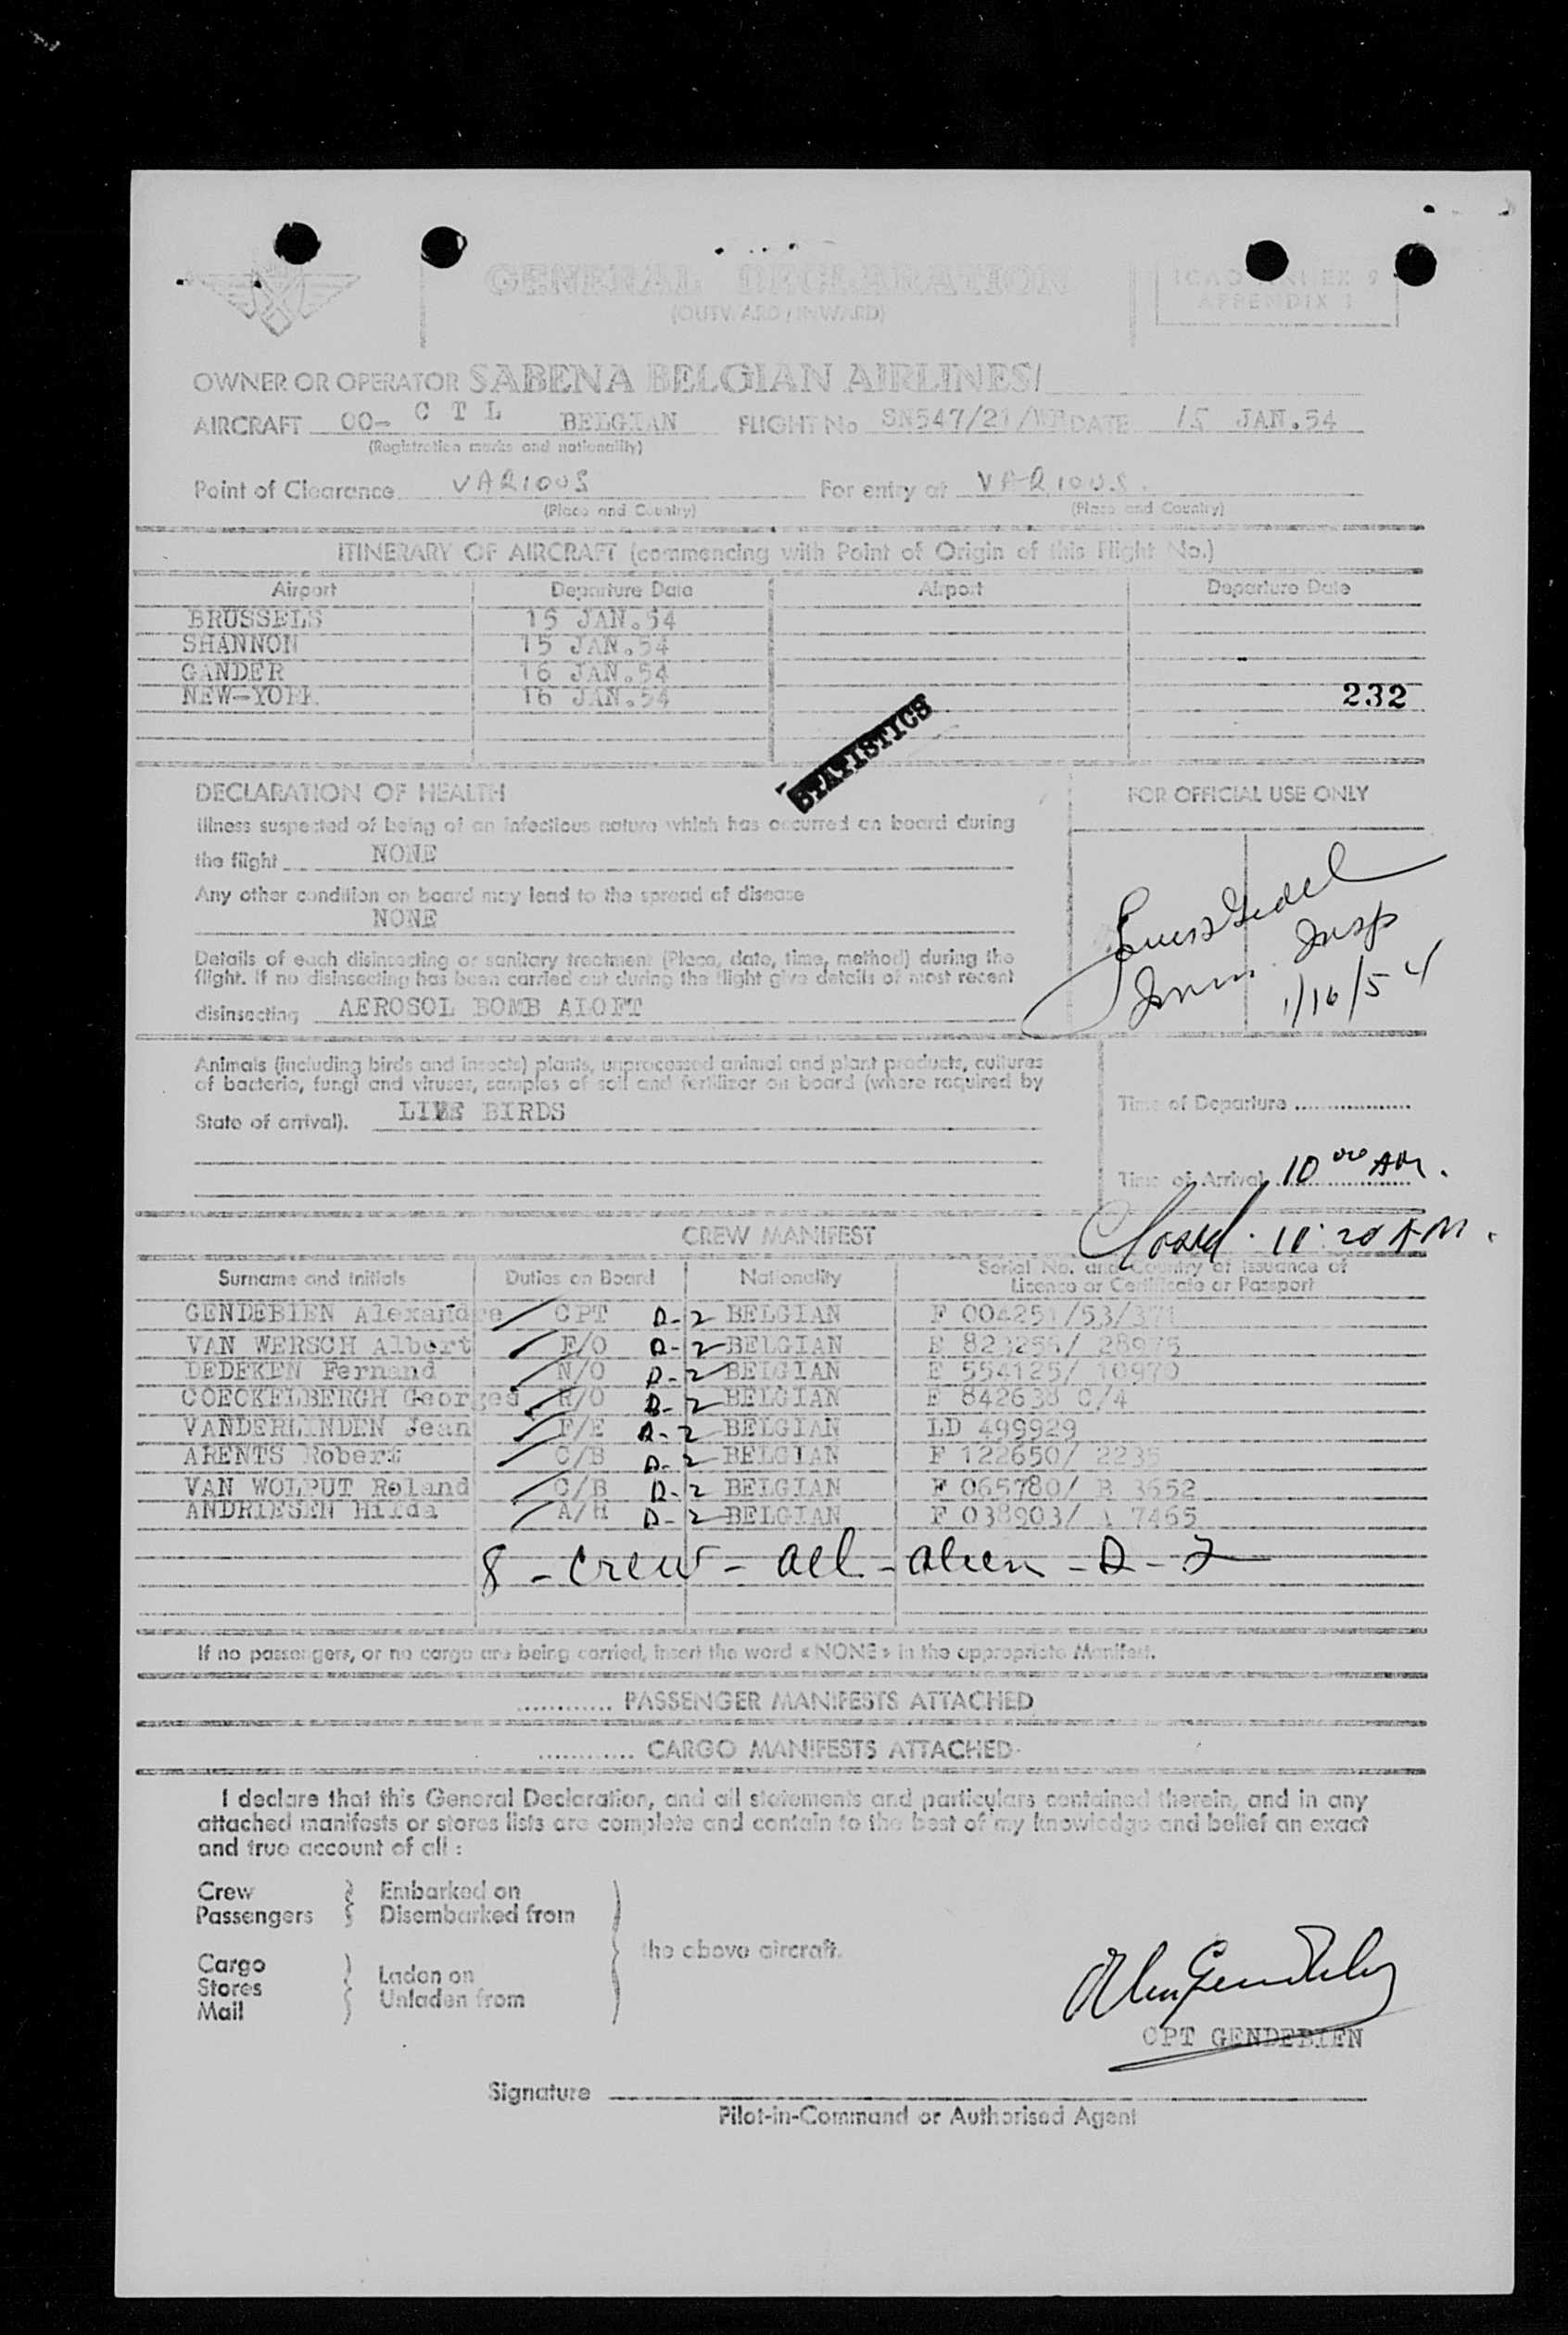 GENERAL DECLARATION
(OUTWARD / INWARD)
ICAO ANNEX 9
APPENDIX 1
OWNER OR OPERATOR SABENA BELGIAN AIRLINES/
AIRCRAFT OO- C T L BELGIAN FLIGHT No SN547/21/ DATE 15 JAN.54
(Registration marks and nationality)
Point of Clearance VARIOUS For entry at VARIOUS.
(Place and Country) (Place and Country)
ITINERARY OF AIRCRAFT (commencing with Point of Origin of this Flight No.)
Airport Departure Date Airport Departure Date
BRUSSELS 15 JAN.54
SHANNON 15 JAN.54
GANDER 16 JAN.54
NEW-YORK 16 JAN.54 232
STATISTICS
DECLARATION OF HEALTH FOR OFFICIAL USE ONLY
Illness suspected of being of an infectious nature which has occurred on board during
the flight NONE
Any other condition on board may lead to the spread of disease
NONE
Details of each disinsecting or sanitary treatment (Place, date, time, method) during the
flight. If no disinsecting has been carried out during the flight give details of most recent
disinsecting AEROSOL BOMB ALOFT
Insp
Imm.
1/16/54
Animals (including birds and insects) plants, unprocessed animal and plant products, cultures
of bacteria, fungi and viruses, samples of soil and fertilizer on board (where required by
State of arrival). LIVE BIRDS
Time of Departure
Time of Arrival 10 00 AM.
Closed. 10:20 AM.
CREW MANIFEST
Surname and Initials Duties on Board Nationality Serial No. and Country of Issuance of
Licence or Certificate or Passport
GENDEBIEN Alexandre CPT D-2 BELGIAN F 004251/53/371
VAN WERSCH Albert F/O D-2 BELGIAN E / 28975
DEDEKEN Fernand N/O D-2 BELGIAN E 554125/ 10970
COECKELBERGH Georges R/O D-2 BELGIAN E 842638 C/4
VANDERLINDEN Jean F/E D-2 BELGIAN LD 499929
ARENTS Robert C/B D-2 BELGIAN F 122650/ 2235
VAN WOLPUT Roland C/B D-2 BELGIAN F 065780/ B 3652
ANDRIESEN Hilda A/H D-2 BELGIAN F 038903/ A 7465
8 - crew - all - alien - D-2
If no passengers, or no cargo are being carried, insert the word «NONE» in the appropriate Manifest.
............ PASSENGER MANIFESTS ATTACHED
............ CARGO MANIFESTS ATTACHED
I declare that this General Declaration, and all statements and particulars contained therein, and in any
attached manifests or stores lists are complete and contain to the best of my knowledge and belief an exact
and true account of all :
Crew Embarked on
Passengers Disembarked from
the above aircraft.
Cargo
Stores Laden on
Mail Unladen from
CPT GENDEBIEN
Signature
Pilot-in-Command or Authorised Agent